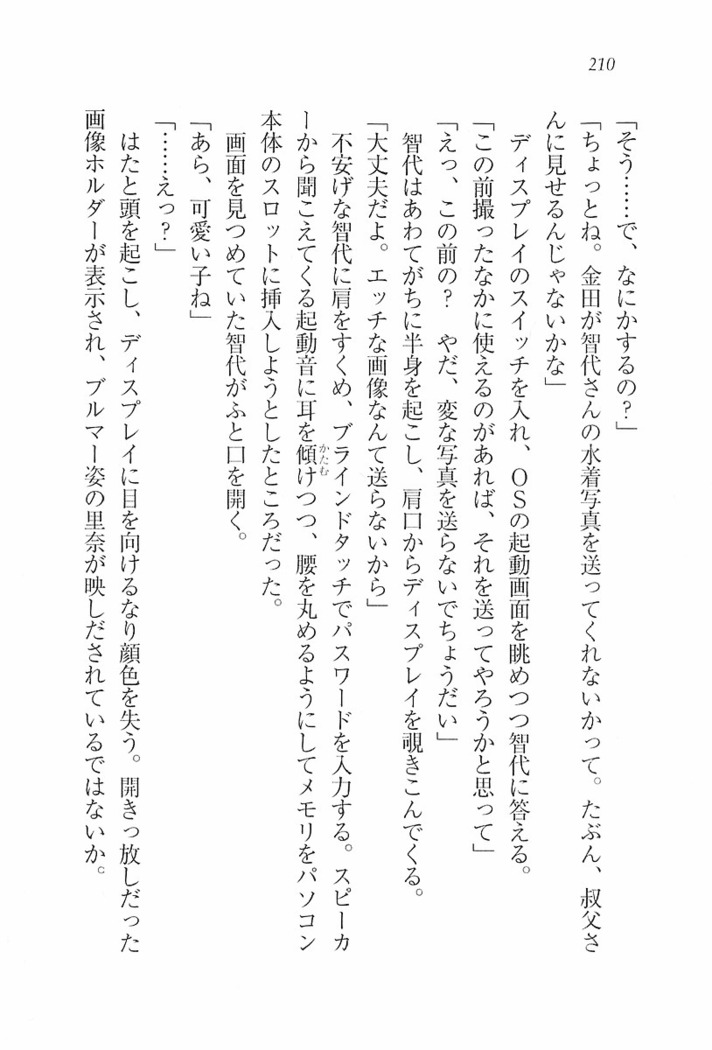 210
「そう……で、なにかするの？」
「ちょっとね。金田が智代さんの水着写真を送ってくれないかって。たぶん、叔父さ
んに見せるんじゃないかな」
ディスプレイのスイッチを入れ、ＯＳの起動画面を眺めつつ智代に答える。
「この前撮ったなかに使えるのがあれば、それを送ってやろうかと思って」
「えっ、この前の？　やだ、変な写真を送らないでちょうだい」
智代はあわてがちに半身を起こし、肩口からディスプレイを覗きこんでくる。
「大丈夫だよ。エッチな画像なんて送らないから」
不安げな智代に肩をすくめ、ブラインドタッチでパスワードを入力する。スピーカ
ーから聞こえてくる起動音に耳を傾けつつ、腰を丸めるようにしてメモリをパソコン
かたむ
本体のスロットに挿入しようとしたところだった。
画面を見つめていた智代がふと口を開く。
「あら、可愛い子ね」
「……えっ？」
はたと頭を起こし、ディスプレイに目を向けるなり顔色を失う。開きっ放しだった
画像ホルダーが表示され、ブルマー姿の里奈が映しだされているではないか。